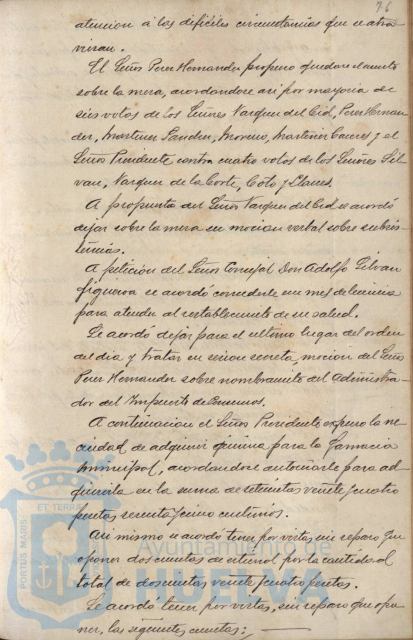 76
atencion á las dificiles circunstancias que se atra
viesan.
El Señor Perez Hernandez propuso quedare el asunto
sobre la mesa, acordandose asi por mayoria de
seis votos de los Señores Vazquez del Cid, Perez Hernan
dez, Martinez Sanchez, Moreno, Martinez Caceres y el
Señor Presidente contra cuatro votos de los Señores Sil
van, Vazquez de la Corte, Coto y Claves.
A propuesta del Señor Vazquez del Cid se acordó
dejar sobre la mesa su mocion verbal sobre subsis
tencias.
A peticion del Señor Concejal Don Adolfo Silvan
Figueroa se acordó concederle un mes de licencia
para atender al restablecimiento de su salud.
Se acordó dejar para el ultimo lugar del orden
del dia y tratar en sesion secreta, mocion del Señor
Perez Hernandez sobre nombramiento del Administra
dor del Impuesto de Consumos.
A continuacion el Señor Presidente expuso la ne
cesidad de adquirir quinina para la farmacia
Municipal, acordandose autorizarle para ad
quirirla en la suma de setecientas veinte y cuatro
pesetas sesenta y cinco centimos.
Asi mismo se acordó tener por vistas, sin reparo que
oponer dos cuentas de                por la cantidad
total de doscientas veinte y cuatro pesetas.
Se acordó tener por vistas, sin reparo que opo
ner, las siguientes cuentas:
PORTUS MARIS ET TERRÆ
Ayuntamiento de
HUELVA